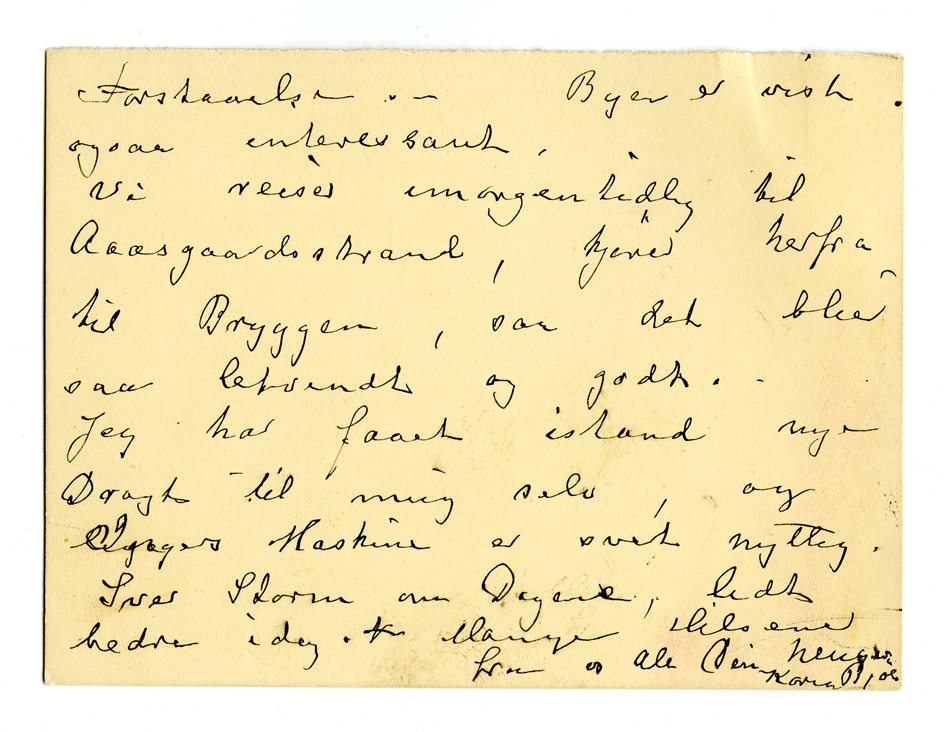 Forstaaelse .— Byen er vist
ogsaa interessant,
Vi reiser imorgen tidlig til
Aaasgaardsstrand, kjører herfra
til Bryggen, saa det blir
saa letvendt og godt. -
Jeg har faaet istand nye
Dragt til mig selv, og
Maskine er svært nyttig.
Svær Storm om Dagene, lidt
bedre idag. Mange Hilsener
fra os alle Din hengivne
Karen B